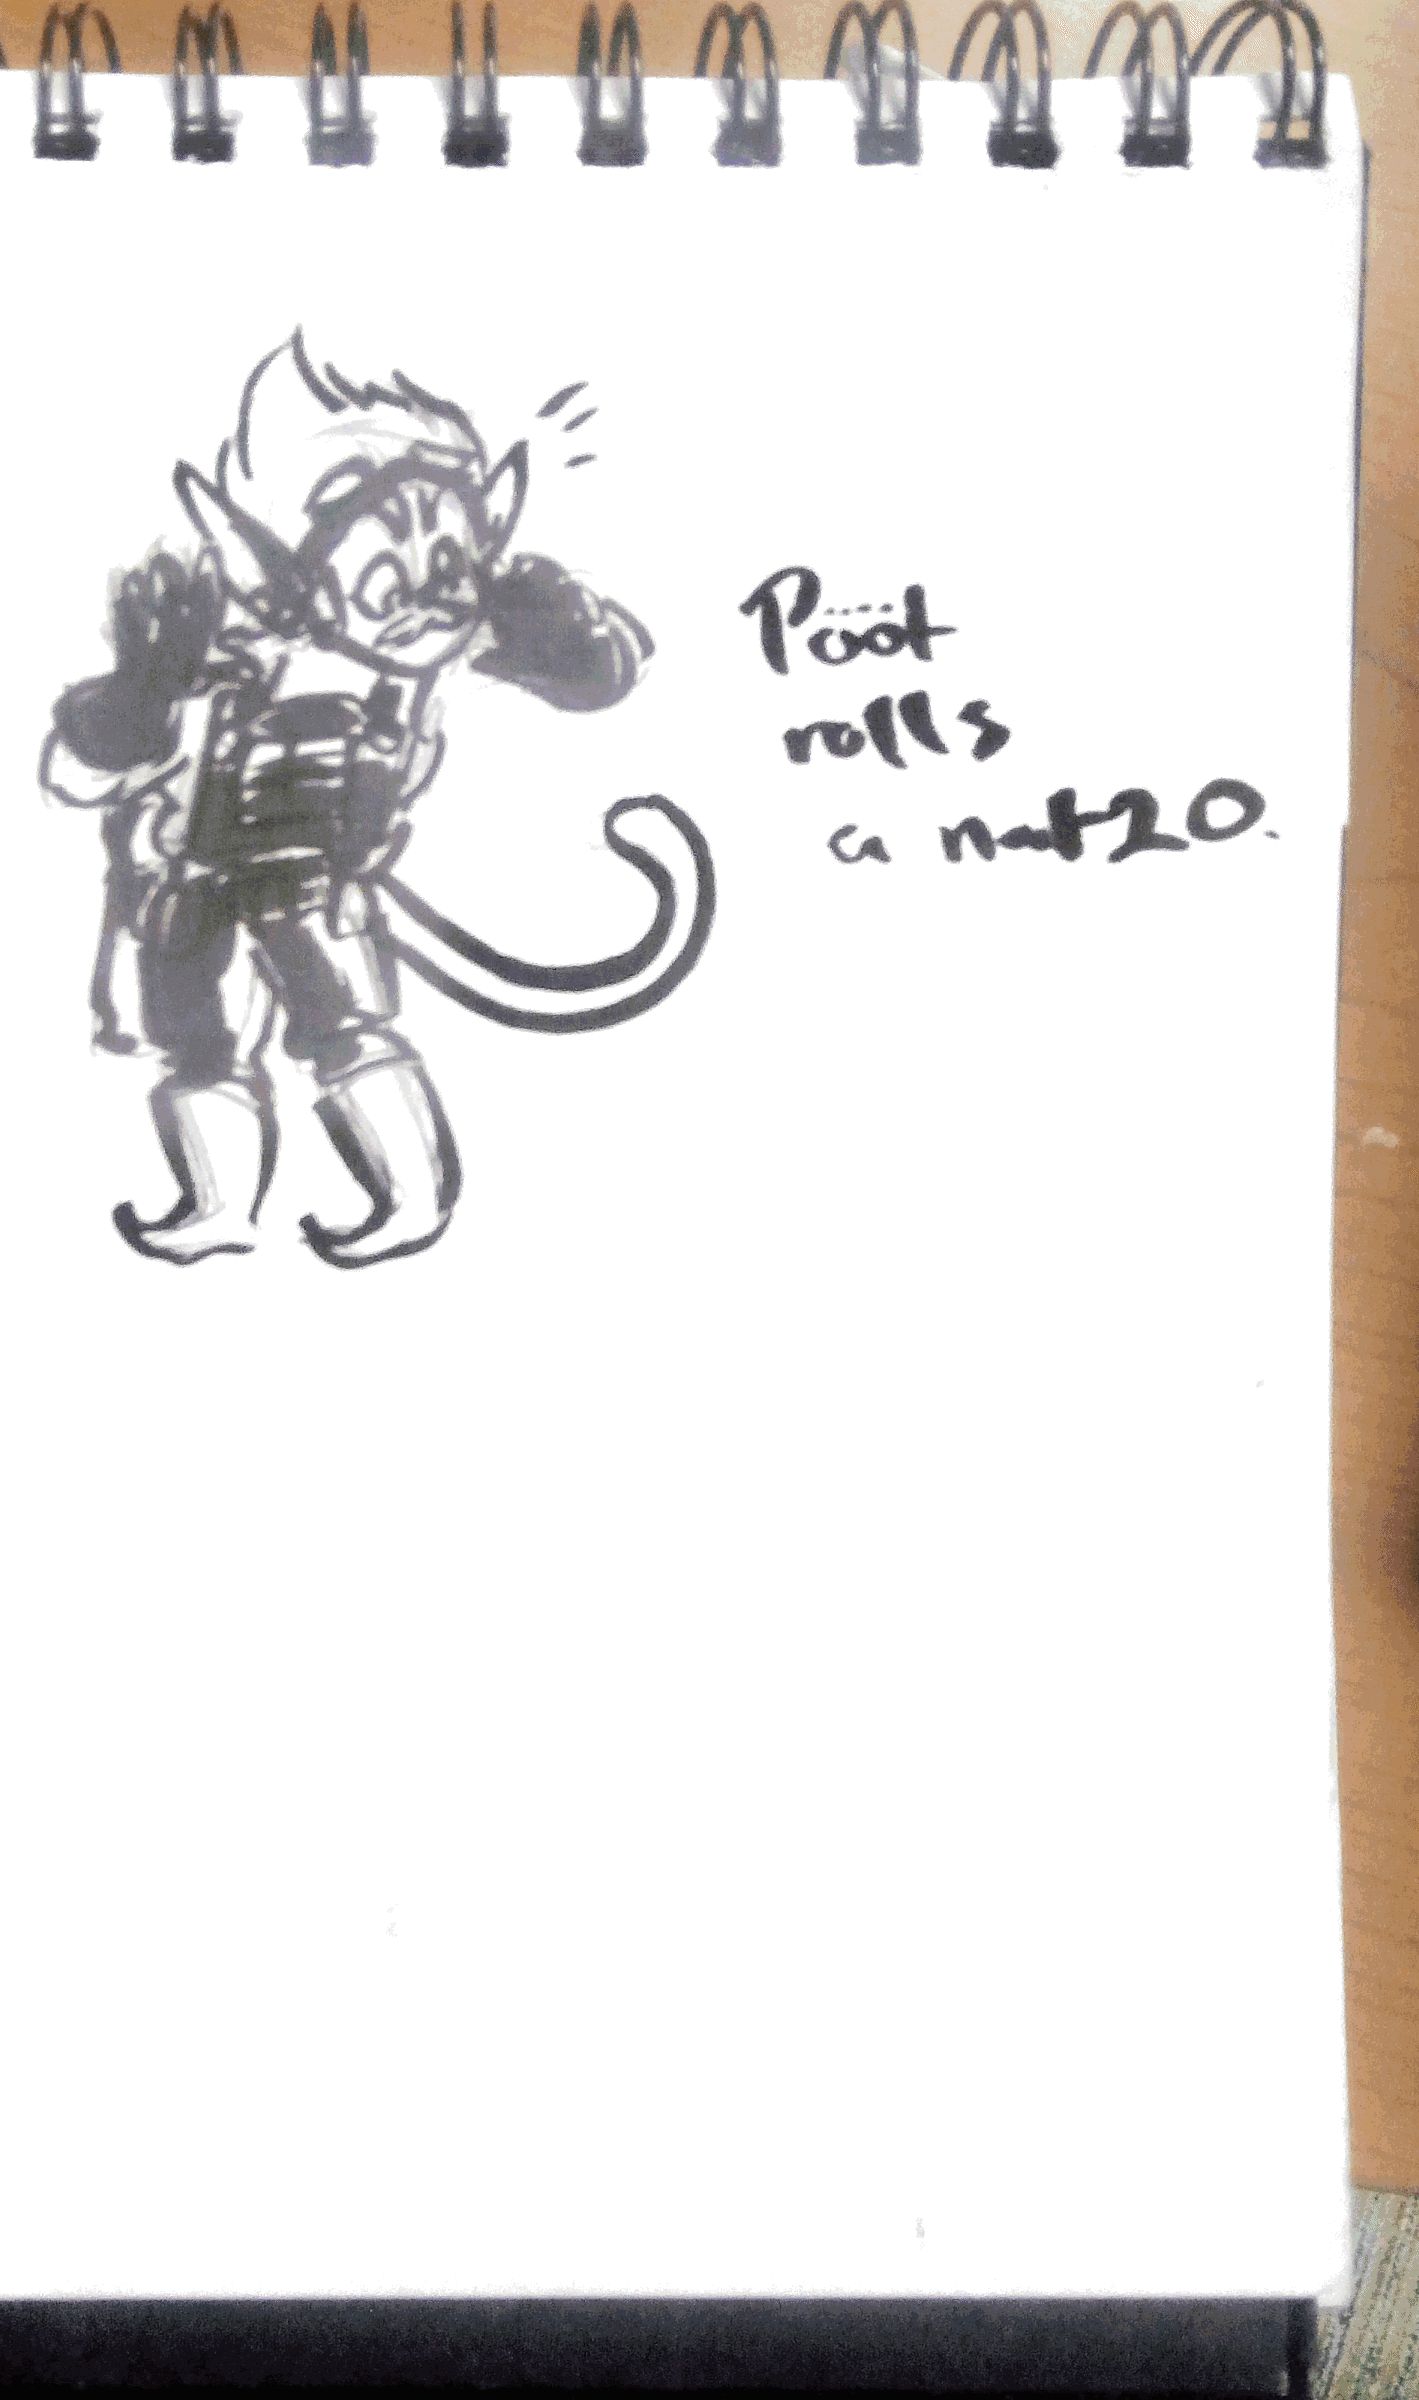 Pööt
rolls
a nat 20.